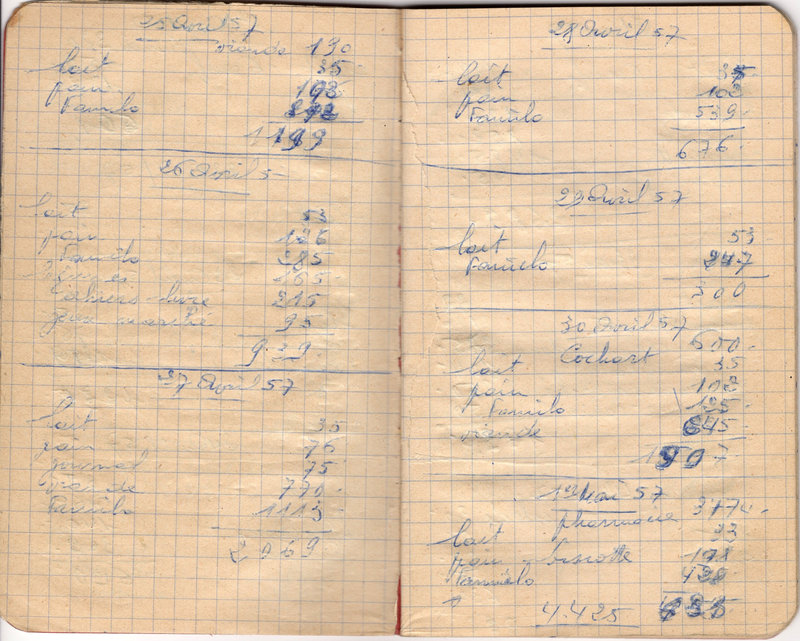 25 Avril 57
viande 190
lait 35
pain 102
Familo
1199
26 Avril 5
lait 53
pain 126
Familo 285
165
Cahiers-livre 215
marché 95
939
27 Avril 57
lait 35
pain 76
journal 75
viande 770
Familo 1113
2069
28 Avril 57
lait 35
pain 102
Familo 539
676
29 Avril 57
lait 53
Familo 247
300
30 Avril 57
Cochart 600
lait 35
pain 102
Familo 125
viande 645
1507
1er Mai 57
pharmacie 3770
lait 33
pain - biscotte 192
Familo 430
4.425 655